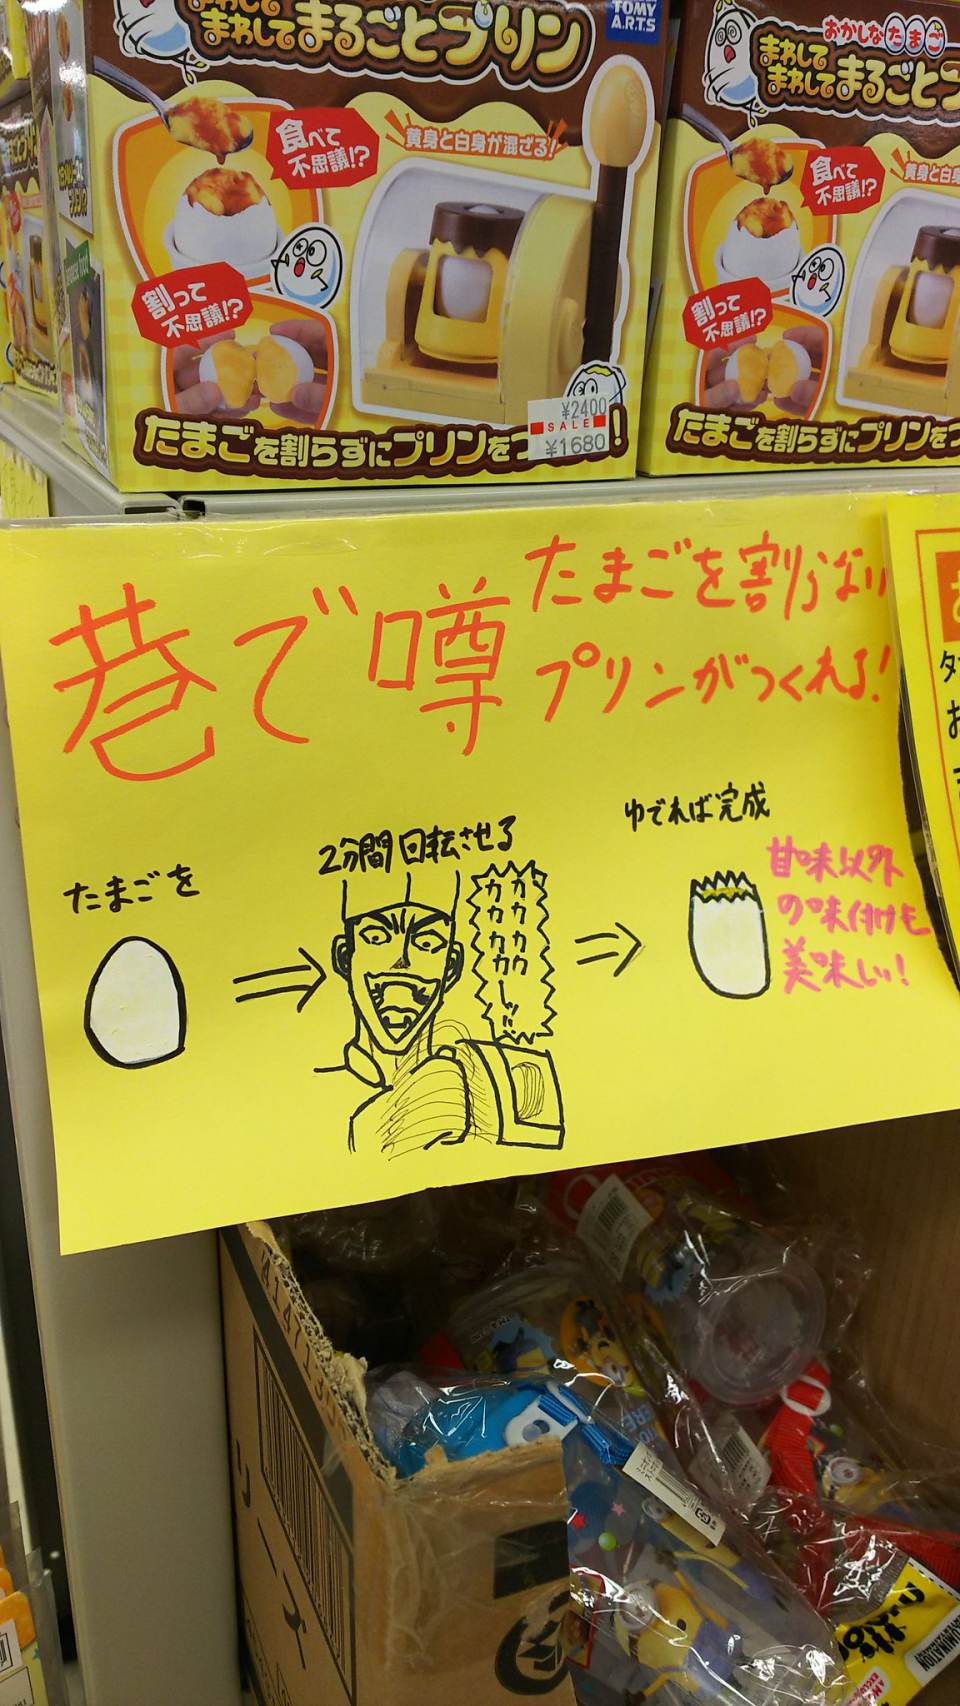 まわして
まわしてまるごとプリン
TOMY
A.R.T.S
食べて
不思議!?
黄身と白身が混ざる!
割って
不思議!?
¥2400
SALE
¥1680
たまごを割らずにプリンをつ
!
おかしなたまご
まわして
まわしてまるごとプ
食べて
不思議!?
黄身と白身
割って
不思議!?
たまごを割らずにプリンをつ
巷で噂
たまごを割らない
プリンがつくれる!
たまごを
2分間回転させる
カカカカカ
カカカカカーッ!!
ゆでれば完成
甘味以外
の味付けも
美味しい!